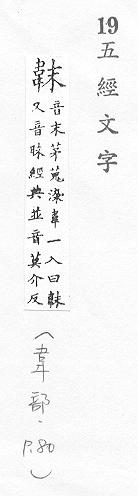 19
五經文字
韎
音末茅蒐染韋一入曰韎
又音昧經典並音莫介反
(韋部·P.80)